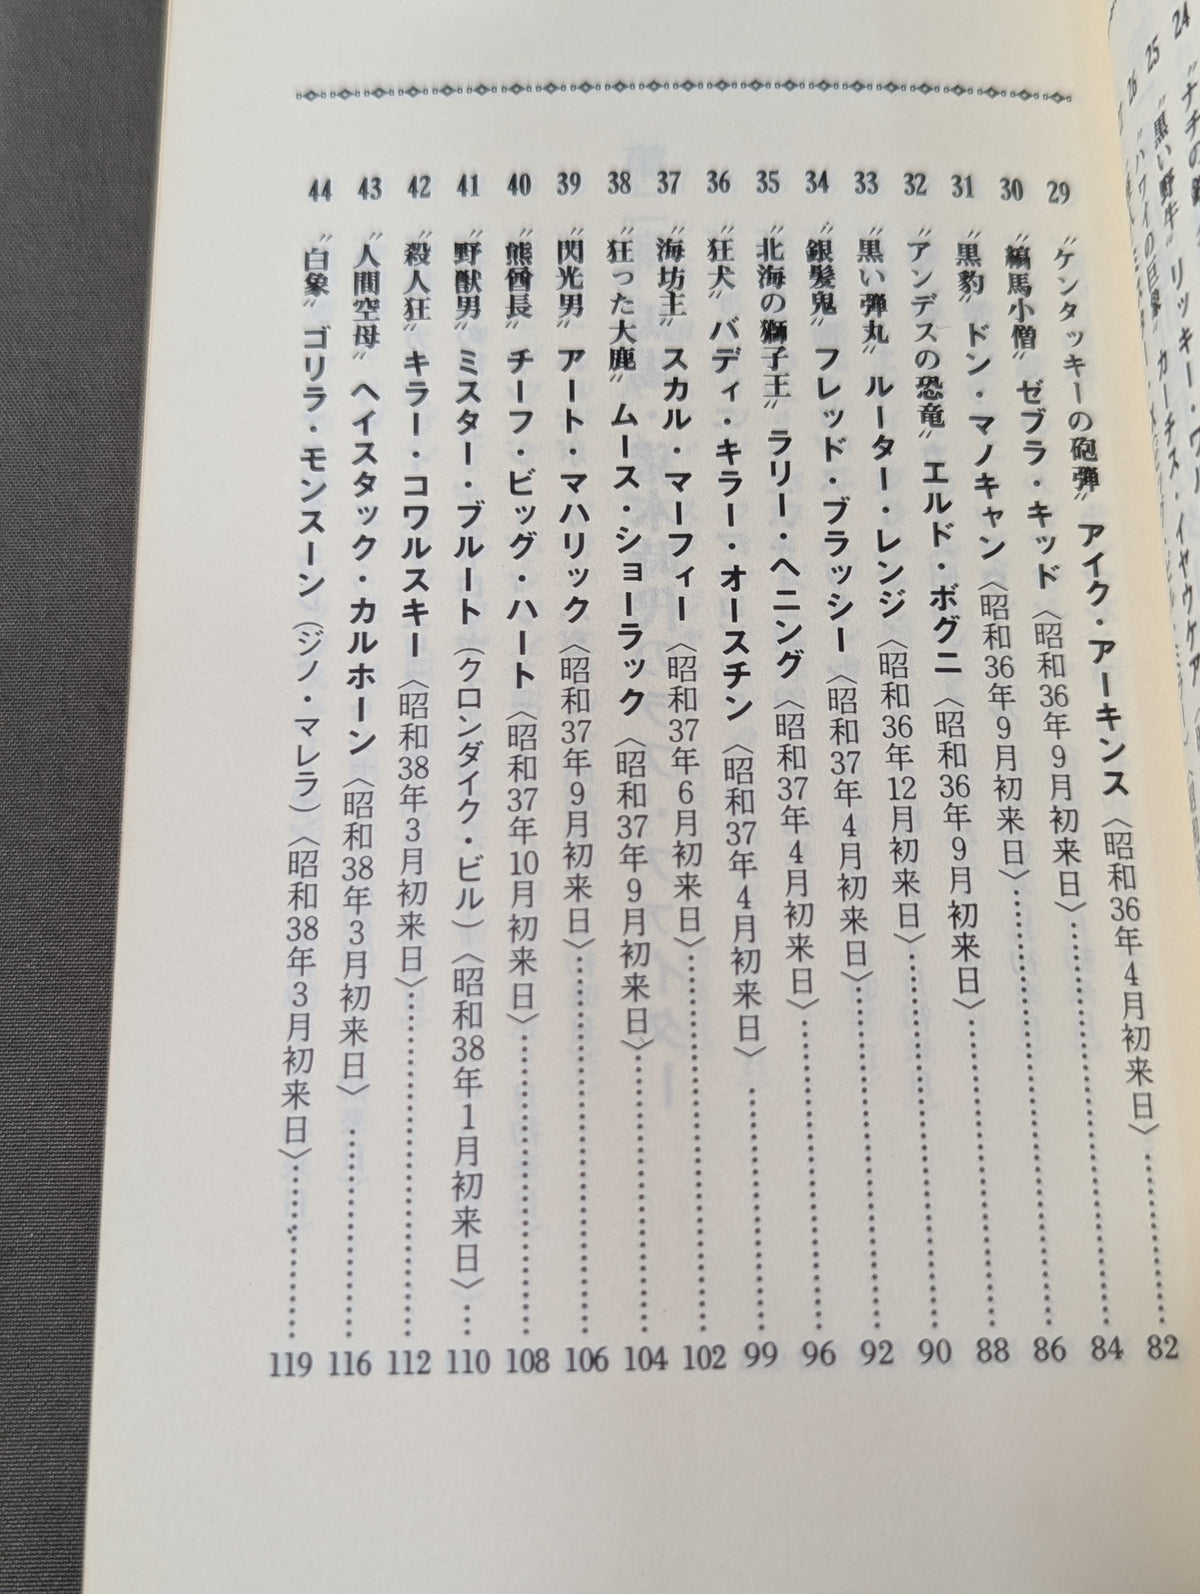 29 〝ケンタッキーの砲弾〟 アイク・アーキンス〈昭和36年4月初来日〉…… 82
30 〝縞馬小僧〟 ゼブラ・キッド〈昭和36年9月初来日〉…… 84
31 〝黒豹〟 ドン・マノキャン〈昭和36年9月初来日〉…… 86
32 〝アンデスの恐竜〟 エルド・ボグニ〈昭和36年9月初来日〉…… 88
33 〝黒い弾丸〟 ルーター・レンジ〈昭和36年12月初来日〉…… 90
34 〝銀髪鬼〟 フレッド・ブラッシー〈昭和37年4月初来日〉…… 92
35 〝北海の獅子王〟 ラリー・ヘニング〈昭和37年4月初来日〉…… 96
36 〝狂犬〟 バディ・キラー・オースチン〈昭和37年4月初来日〉…… 99
37 〝海坊主〟 スカル・マーフィー〈昭和37年6月初来日〉…… 102
38 〝狂った大鹿〟 ムース・ショーラック〈昭和37年9月初来日〉…… 104
39 〝閃光男〟 アート・マハリック〈昭和37年9月初来日〉…… 106
40 〝熊酋長〟 チーフ・ビッグ・ハート〈昭和37年10月初来日〉…… 108
41 〝野獣男〟 ミスター・ブルート（クロンダイク・ビル）〈昭和38年1月初来日〉… 110
42 〝殺人狂〟 キラー・コワルスキー〈昭和38年3月初来日〉…… 112
43 〝人間空母〟 ヘイスタック・カルホーン〈昭和38年3月初来日〉…… 116
44 〝白象〟 ゴリラ・モンスーン（ジノ・マレラ）〈昭和38年3月初来日〉…… 119